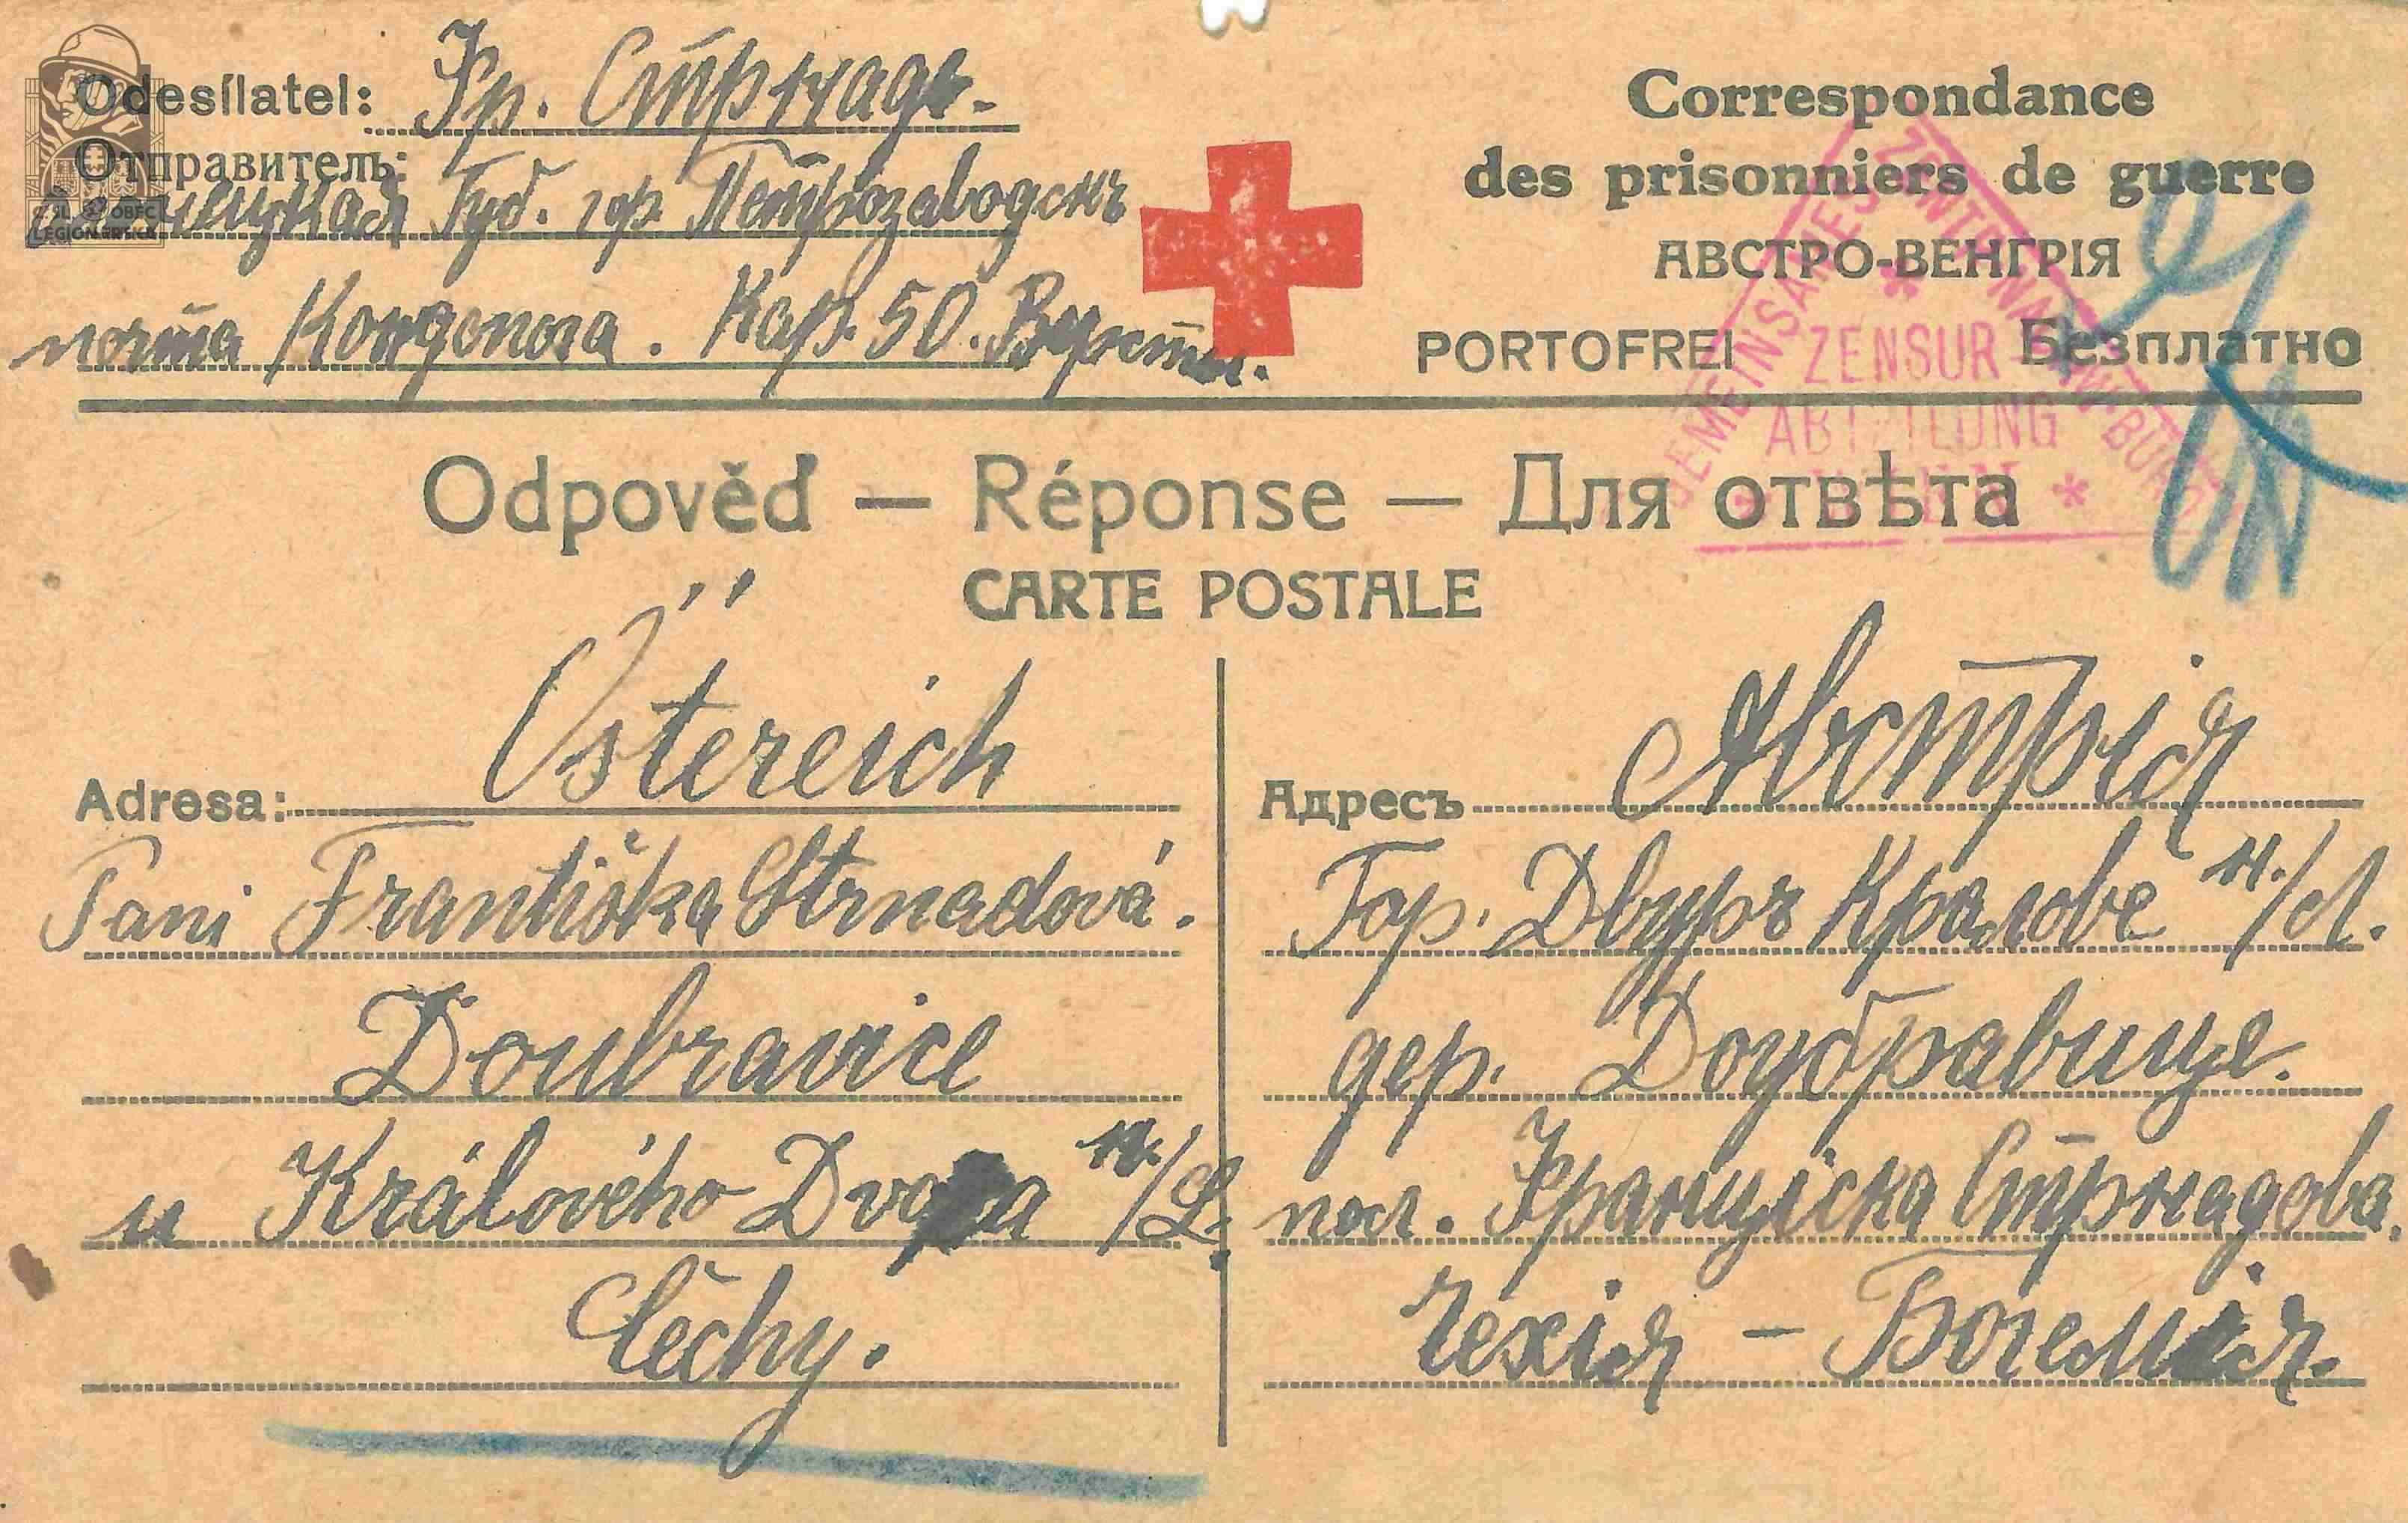 Odesílatel: Фр. Стрнадъ.
Отправитель:
Олонецкая Губ. гор. Петрозаводскъ
почта Кондопога. Кар. 50. Версты.
Correspondance
des prisonniers de guerre
АВСТРО-ВЕНГРІЯ
PORTOFREI Безплатно
GEMEINSAMES ZENTRALNACHWEISBUREAU
ZENSUR
ABTEILUNG
Odpověď — Réponse — Для отвѣта
CARTE POSTALE
Adresa: Östereich
Paní Františka Strnadová.
Doubravice
u Králového Dvora n./L.
Čechy.
Адресъ Австрія
Гор. Двуръ Кралове н./Л.
дер. Доубравице.
пол. Франціска Стрнадова.
Чехія – Богемія.
ČS. OBEC
LEGIONÁŘSKÁ